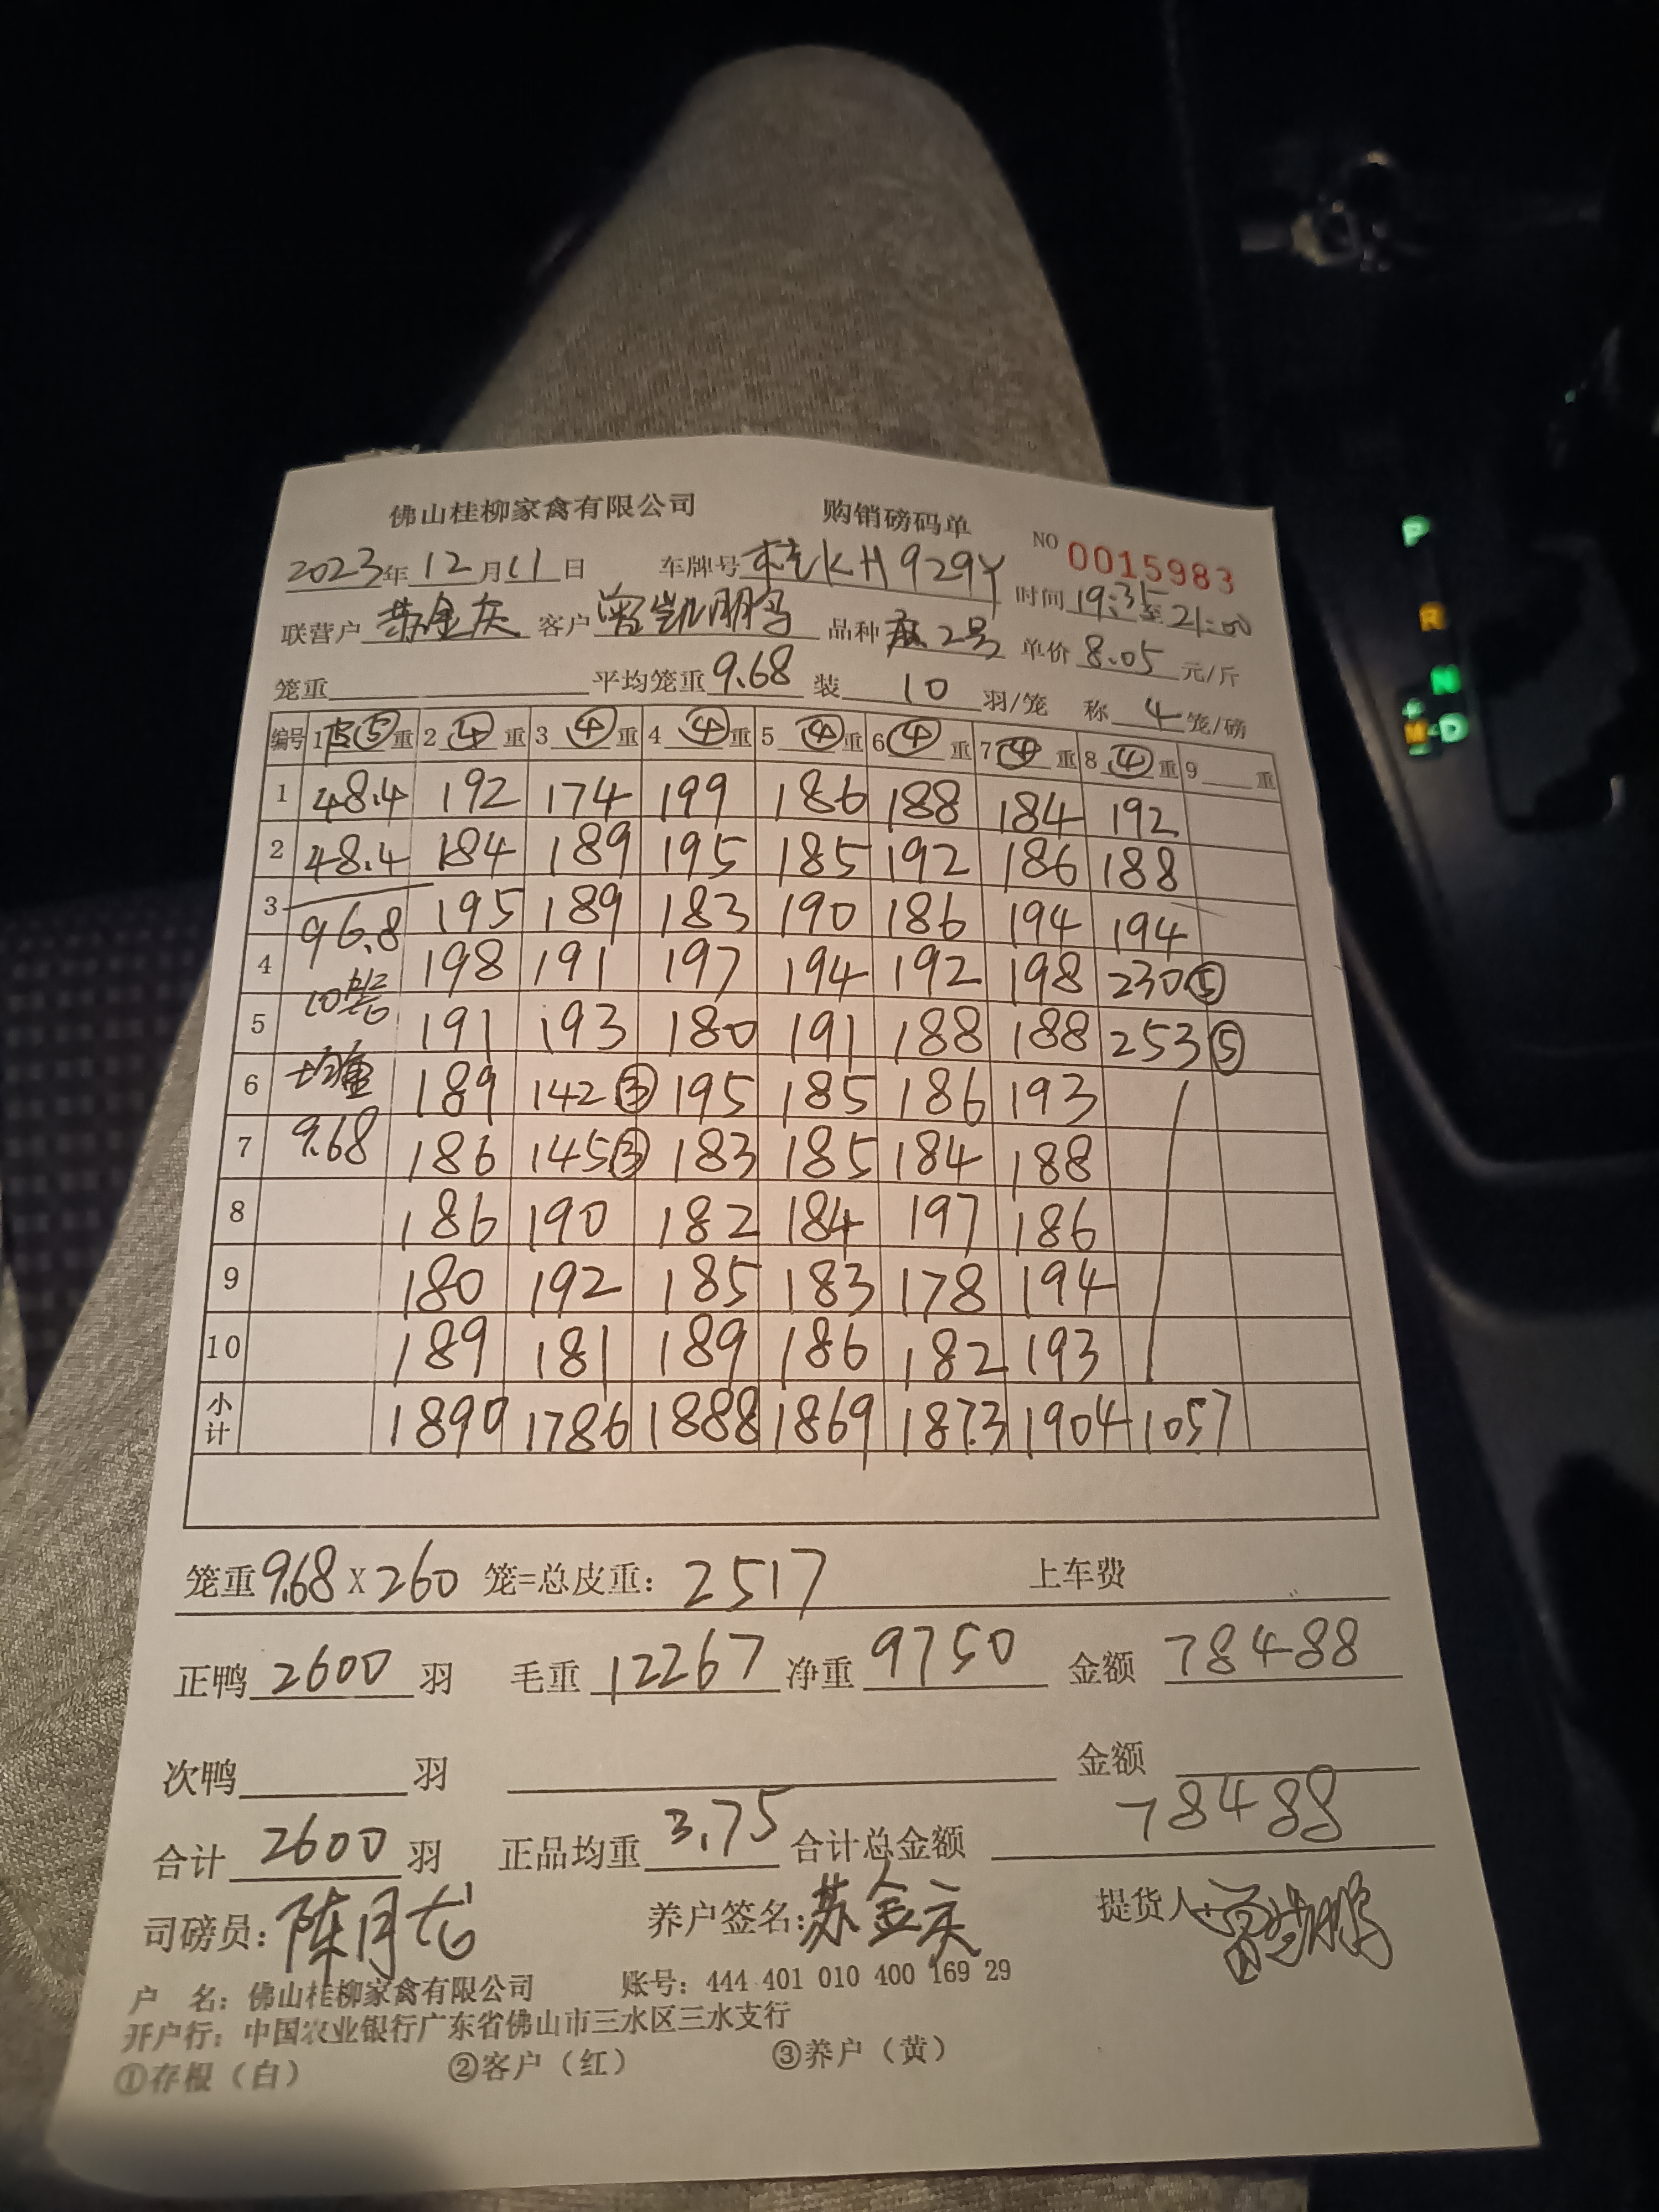 佛山桂柳家禽有限公司 购销磅码单 NO 0015983
2023年12月11日 车牌号 桂KH929Y 时间 19:35至21:00
联营户 苏金庆 客户 曾凯鹏 品种 2号 单价 8.05 元/斤
笼重 平均笼重 9.68 装 10 羽/笼 称 4 笼/磅
编号 1 皮⑤ 重 2 ④ 重 3 ④ 重 4 ④ 重 5 ④ 重 6 ④ 重 7 ④ 重 8 ④ 重 9 重
1 48.4 192 174 199 186 188 184 192
2 48.4 184 189 195 185 192 186 188
3 96.8 195 189 183 190 186 194 194
4 10笼 198 191 197 194 192 198 230⑤
5 191 193 180 191 188 188 253⑤
6 均重 189 142③ 195 185 186 193
7 9.68 186 145③ 183 185 184 188
8 186 190 182 184 197 186
9 180 192 185 183 178 194
10 189 181 189 186 182 193
小计 1890 1786 1888 1869 1873 1904 1057
笼重 9.68 X 260 笼=总皮重: 2517 上车费
正鸭 2600 羽 毛重 12267 净重 9750 金额 78488
次鸭 羽 金额
合计 2600 羽 正品均重 3.75 合计总金额 78488
司磅员: 陈月龙 养户签名: 苏金庆 提货人: 曾凯鹏
户 名: 佛山桂柳家禽有限公司 账号: 444 401 010 400 169 29
开户行: 中国农业银行广东省佛山市三水区三水支行
①存根（白） ②客户（红） ③养户（黄）
P
R
N
+
M D
-